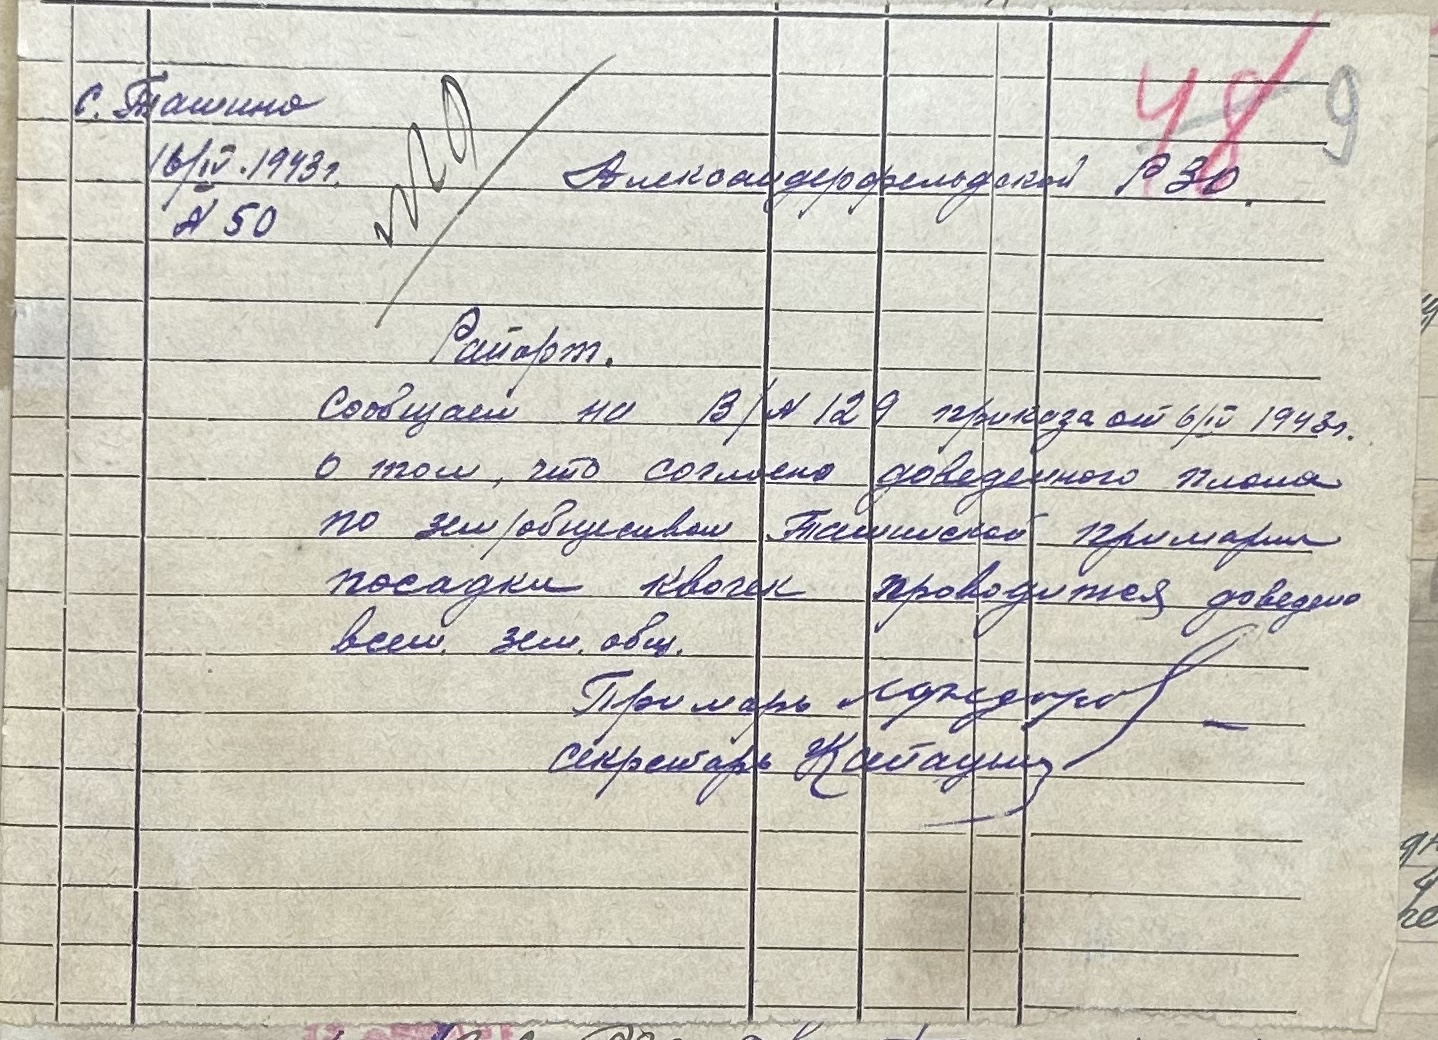 с. Ташино
16/IV.1943г.
№ 50
48 9
Александерфельдской РЗО.
Рапорт.
Сообщаем на В/№ 129 приказа от 6/IV 1943г.
о том, что согласно доведенного плана
по зем/обществам Ташинской примарии
посадки квочек проводится доведено
всем. зем. общ.
Примарь
Секретарь